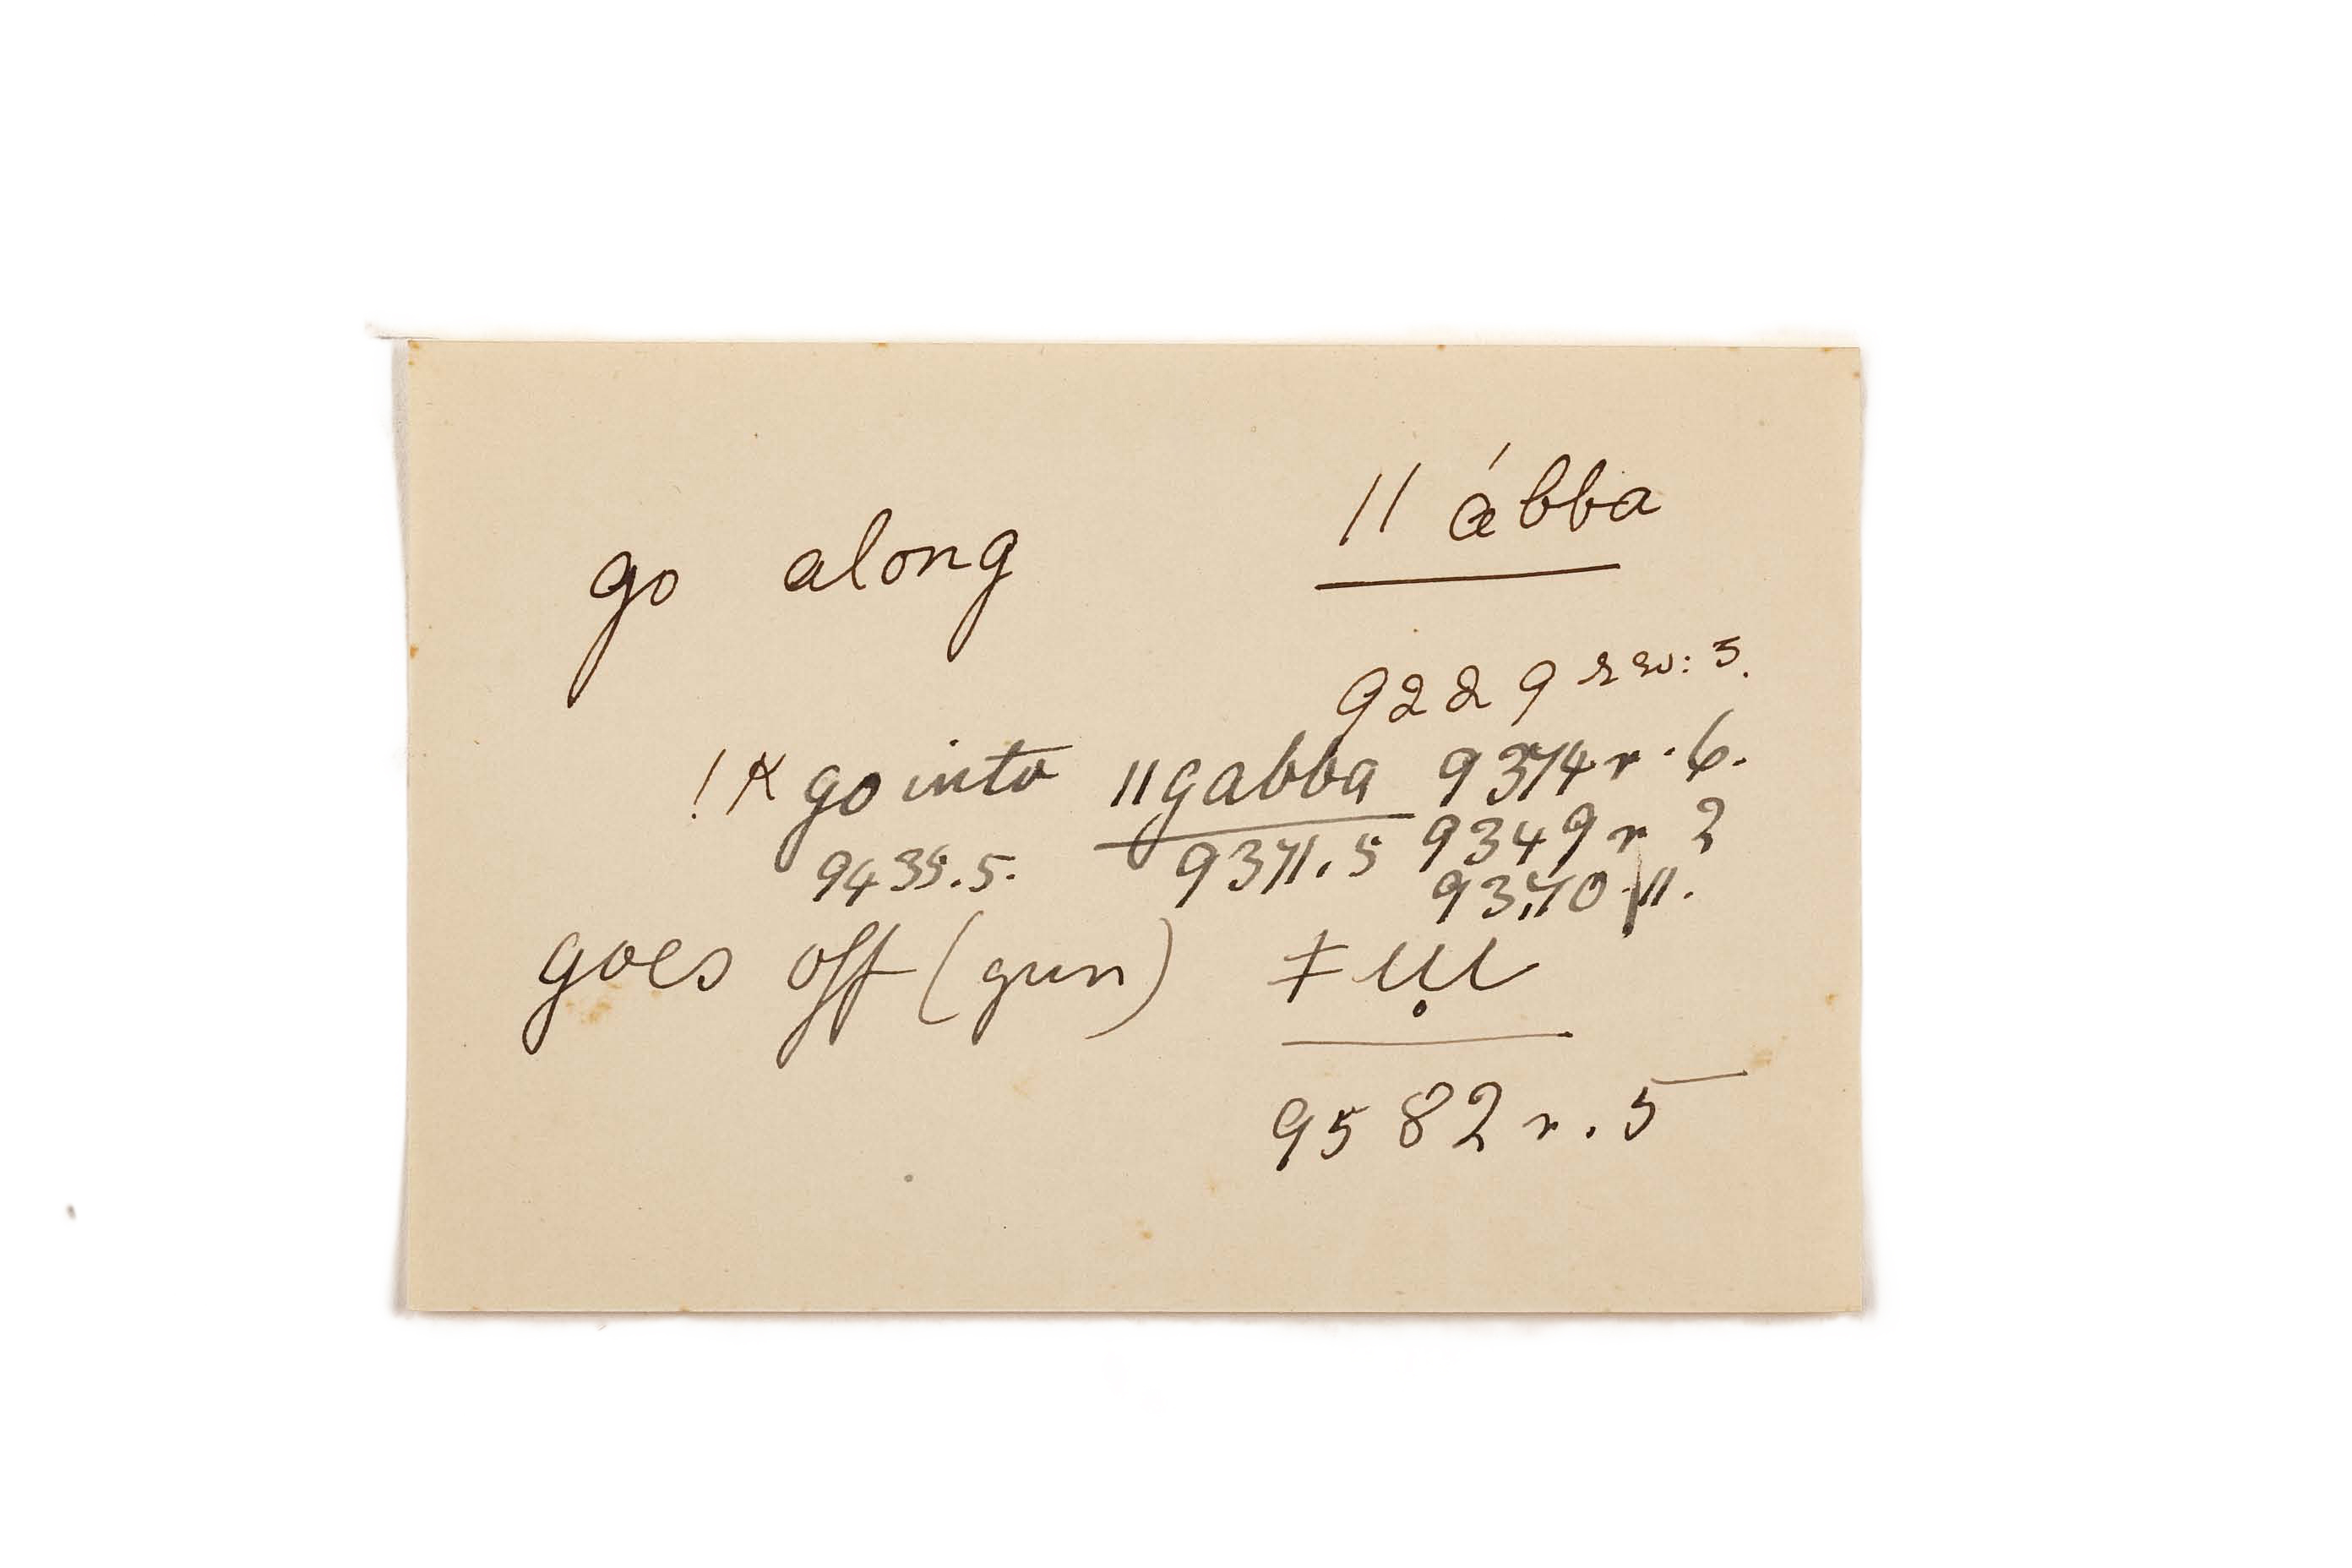 go along ǁ ábba
9229 rev: 3.
!k go into ǁgabba 9374 r. 6.
9435.5. 9371.5 9349 r 2
9370 11.
goes off (gun) ǂ
9582 r. 5